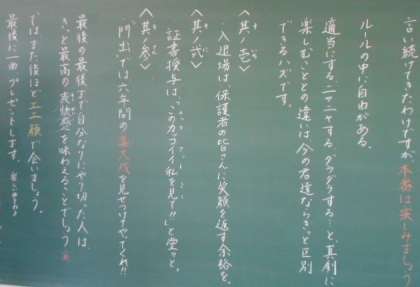 言い続けてきたわけですが、本番は楽しみましょう
ルールの中に自由がある。
適当にする、ニヤニヤする、グラグラする…と、真剣に
楽しむことの違いは今の君達ならきっと区別
できるハズです。
〈其ノ壱〉
・入退場は、保護者の皆さんに笑顔を返す余裕を。
〈其ノ弐〉
・証書授与は、「このカッコイイ私を見て!!」と堂々と。
〈其ノ参〉
・門出では六年間の集大成を見せつけてやてくれ!!
最後の最後まで自分なりにやり切った人は、
きっと最高の達成感を味わえることでしょう。
ではまた後ほどエエ顔で会いましょう。
最後に一曲プレゼントします。